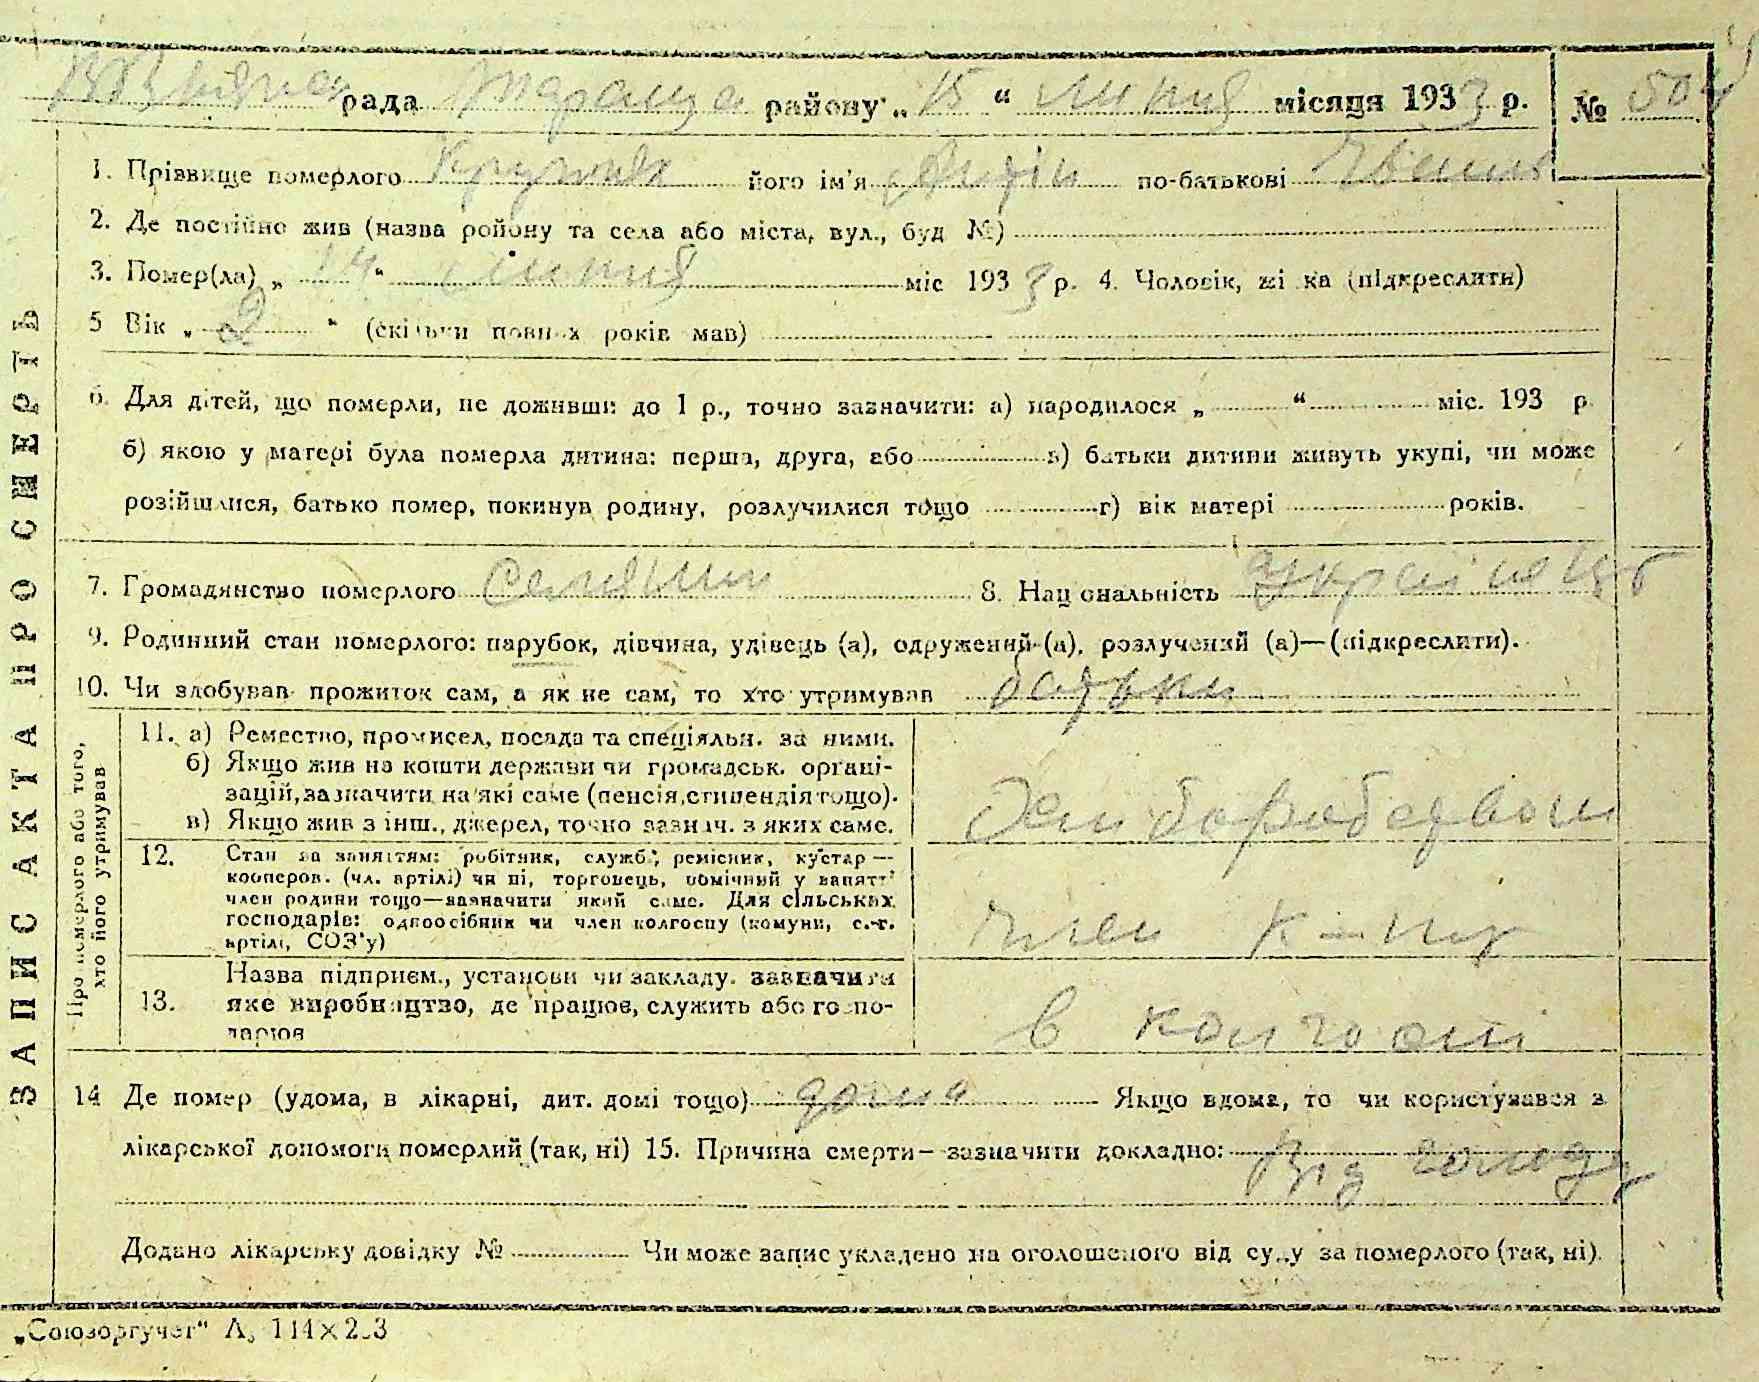 рада района „ 15 “ липня місяця 1933 р. № 504
1. Прізвище померлого його ім'я по-батькові
2. Де постійно жив (назва ройону та села або міста, вул., буд №)
3. Помер(ла) „ 14 “ липня міс 1933 р. 4. Чоловік, жі ка (підкреслити)
5 Вік „ 2 “ (скільки повних років мав)
6. Для дітей, що померли, не доживши до 1 р., точно зазначити: а) народилося „ “ міс. 193 р
б) якою у матері була померла дитина: перша, друга, або в) батьки дитини живуть укупі, чи може
розійшлися, батько помер, покинув родину, розлучилися тощо г) вік матері років.
7. Громадянство померлого Селянин 8. Нац ональність Українець
9. Родинний стан померлого: парубок, дівчина, удівець (а), одружений (а), розлучений (а)—(підкреслити).
10. Чи здобував прожиток сам, а як не сам, то хто утримував батьки
ЗАПИС АКТА ПРО СМЕРТЬ
Про померлого або того, хто його утримував
11. а) Ремество, промисел, посада та спеціяльн. за ними.
б) Якщо жив на кошти держави чи громадськ. органі-
зацій, зазначити на які саме (пенсія, стипендія тощо).
в) Якщо жив з інш., джерел, точно зазнач. з яких саме.
12. Стан за заняттям: робітник, служб., ремісник, кустар—
кооперов. (чл. артілі) чи ні, торговець, помічний у занятті
член родини тощо—зазначити який саме. Для сільських
господарів: одноосібник чи член колгоспу (комуни, с.-г.
артілі, СОЗ'у)
член к-пу
13. Назва підприєм., установи чи закладу. зазначити
яке виробництво, де працює, служить або госпо-
дарює
в колгоспі
14 Де помер (удома, в лікарні, дит. домі тощо) дома Якщо вдома, то чи користувався з
лікарської допомоги померлий (так, ні) 15. Причина смерти— зазначити докладно: Від голоду
Додано лікарську довідку № Чи може запис укладено на оголошеного від суду за померлого (так, ні).
„Союзоргучет“